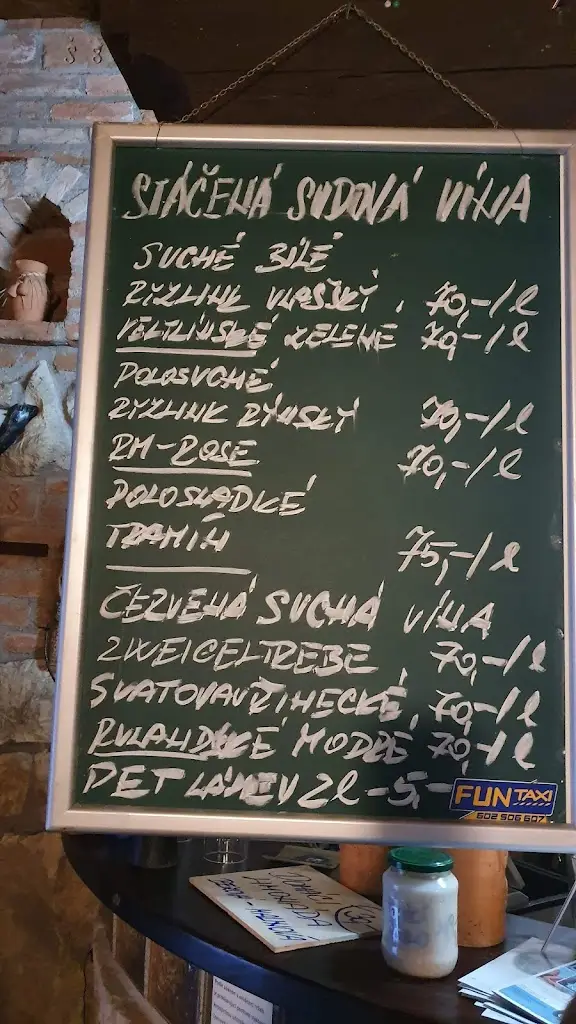 STÁČENÁ SUDOVÁ VÍNA
SUCHÉ BÍLÉ
RYZLINK VLAŠSKÝ 70,-/l
VELTLÍNSKÉ ZELENÉ 70,-/l
POLOSUCHÉ
RYZLINK RÝNSKÝ 70,-/l
RM-ROSE 70,-/l
POLOSLADKÉ
TRAMÍN 75,-/l
ČERVENÁ SUCHÁ VÍNA
ZWEIGELTREBE 70,-/l
SVATOVAVŘINECKÉ 70,-/l
RULANDSKÉ MODRÉ 70,-/l
PET LÁHEV 2l -5,-
FUN TAXI
602 506 607
DOMÁCÍ
LIMONÁDA